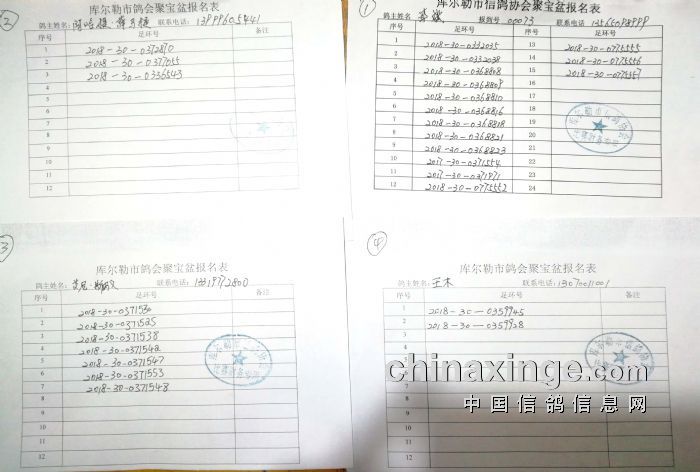 ②
库尔勒市鸽会聚宝盆报名表
鸽主姓名: 联系电话: 13999605441
序号 足环号 备注
1 2018-30-0372870
2 2018-30-0377055
3 2018-30-0336543
4
5
6
7
8
9
10
11
12
①
库尔勒市信鸽协会聚宝盆报名表
鸽主姓名: 报鸽号 00073 联系电话: 13565098999
序号 足环号 序号 足环号
1 2018-30-0332035 13 2018-30-0775555
2 2018-30-0332038 14 2018-30-0775556
3 2018-30-0368808 15 2018-30-0775557
4 2018-30-0368809 16
5 2018-30-0368810 17
6 2018-30-0368816 18
7 2018-30-0368818 19
8 2018-30-0368821 20
9 2018-30-0368823 21
10 2017-30-0371554 22
11 2017-30-0371971 23
12 2018-30-0775552 24
③
库尔勒市鸽会聚宝盆报名表
鸽主姓名: 联系电话: 13319712800
序号 足环号 备注
1 2018-30-0371530
2 2018-30-0371525
3 2018-30-0371538
4 2018-30-0371542
5 2018-30-0371547
6 2018-30-0371553
7 2018-30-0371548
8
9
10
11
12
④
库尔勒市鸽会聚宝盆报名表
鸽主姓名: 王木 联系电话: 13070011001
序号 足环号 备注
1 2018-30-0359945
2 2018-30-0359928
3
4
5
8
9
10
11
12
chinaxinge.com
中国信鸽信息网